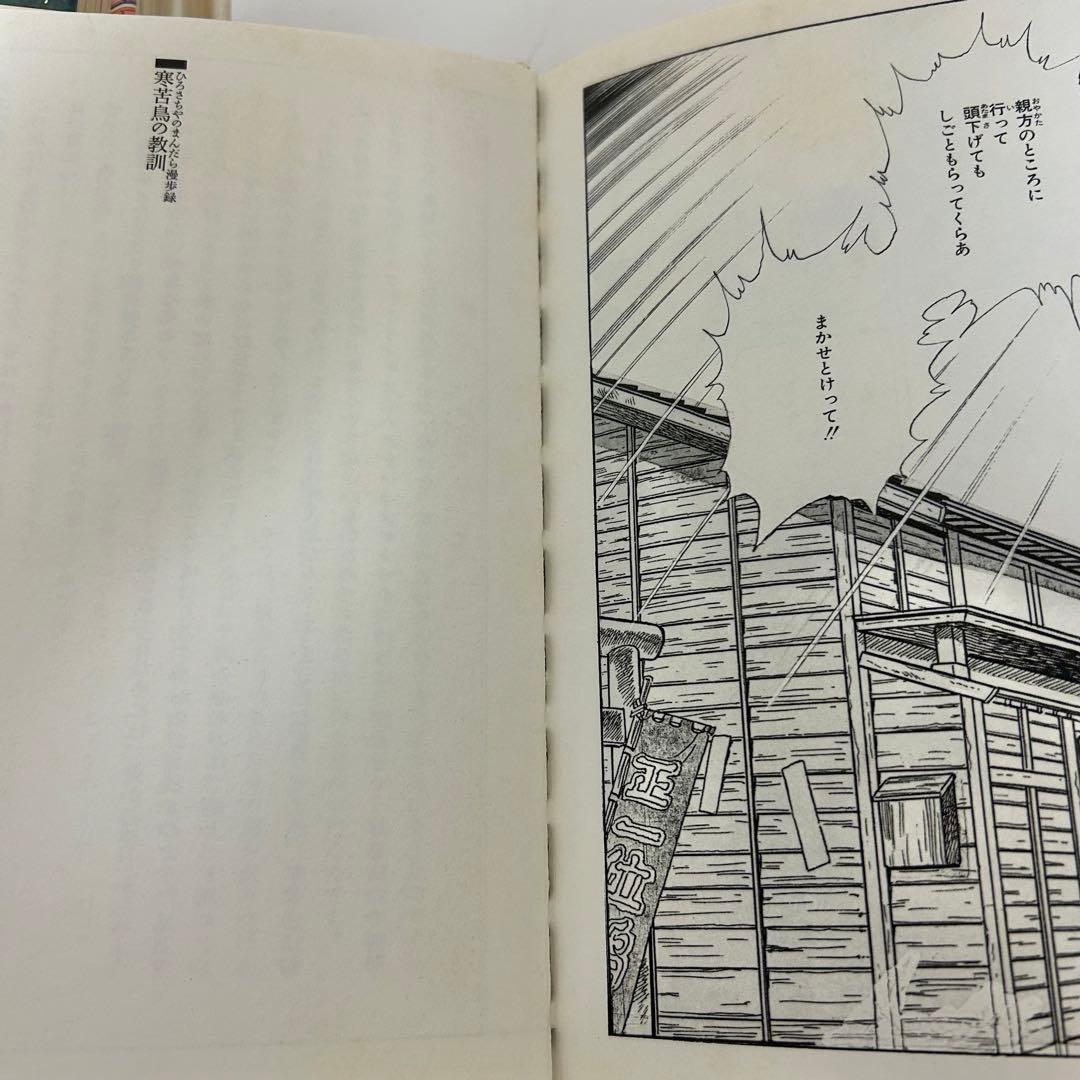 親方のところに
行って
頭下げても
しごともらってくらあ
まかせとけって!!
正一位
ひろさちやのまんだら漫歩録
寒苦鳥の教訓